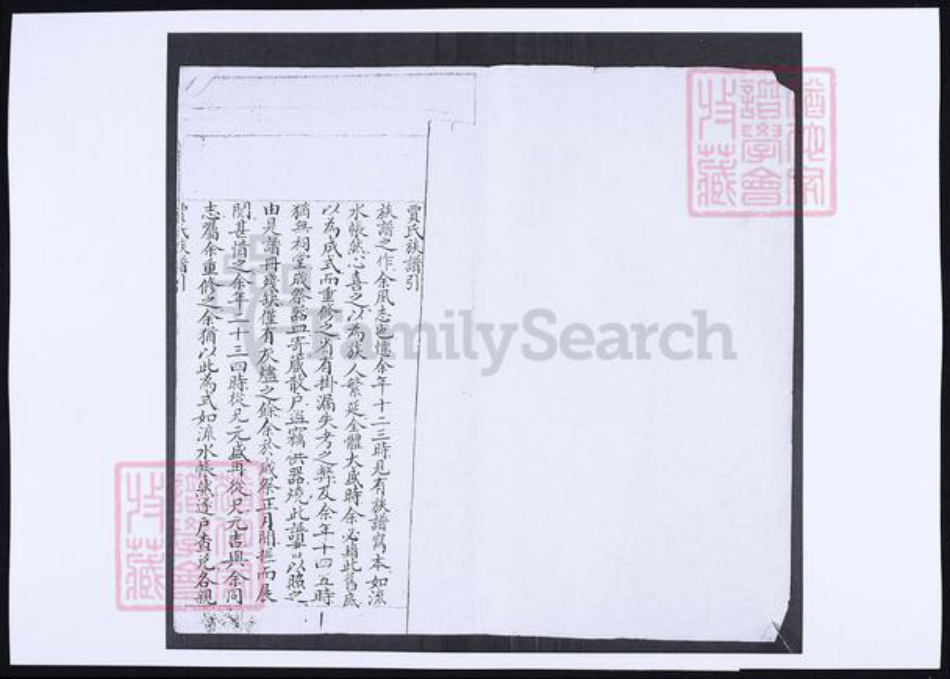 賈氏族譜引
族譜之作余夙志也憶余年十二三時見有族譜寫本如流
水帳然心喜之以為族人繁延全體大盛時余必攜此舊底
以為成式而重修之省有掛漏失考之弊及余年十四五時
猶無祠堂歲祭器皿寄藏散戶盜竊供器燒此譜以照之
由是譜冊殘缺僅有灰燼之餘余於歲祭正月間起而展
閱甚惜之余年二十三四時從兄元盛再從兄元吉與余同
志屬余重修之余猶以此為式如流水帳然逐戶查兌各親
賈氏族譜引
譜學會
收藏
譜學會
收藏
FamilySearch